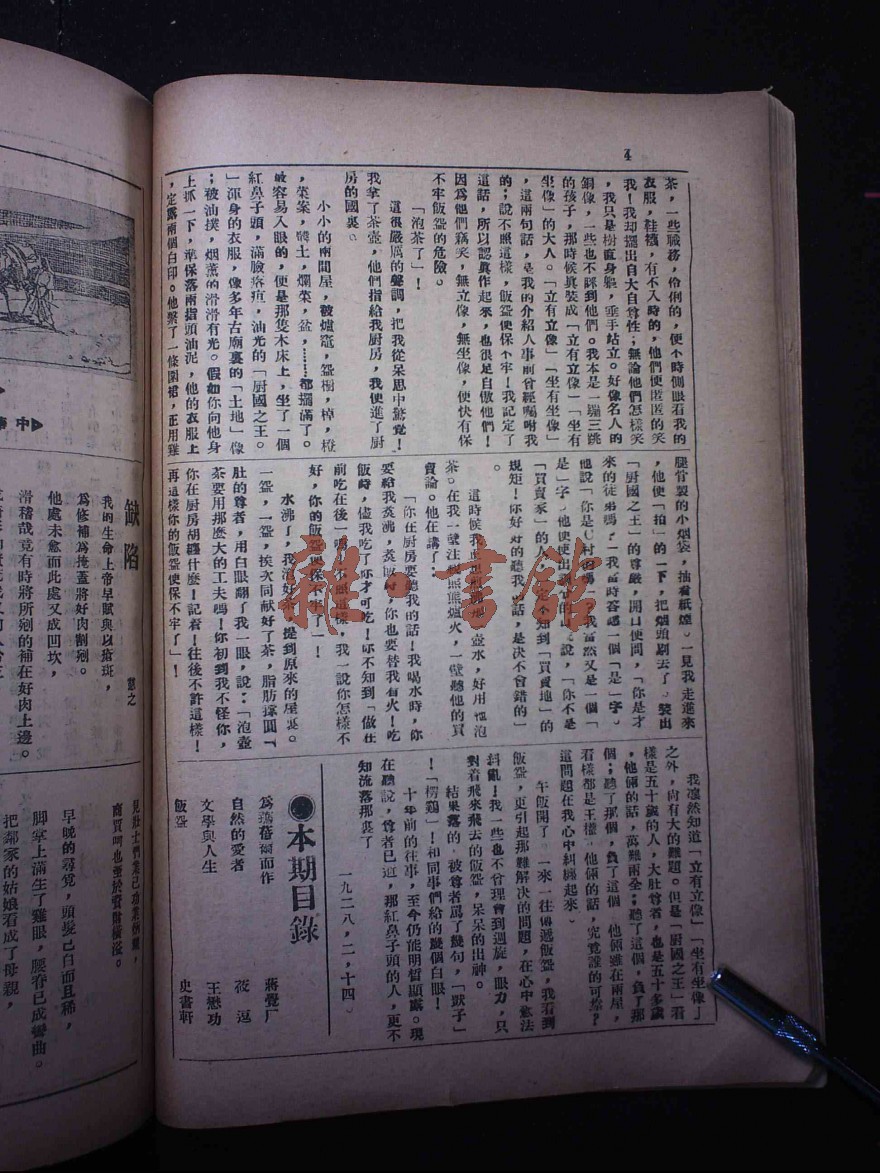 4
茶，一些職務，伶俐的，便不時側眼看我的
衣服，鞋襪，有不入時的，他們便匿匿的笑
我！我却擺出自大自尊性；無論他們怎樣笑
，我只是樹直身軀，垂手站立。好像名人的
銅像，一些也不睬到他們。我本是一蹦三跳
的孩子，那時候真裝成「立有立像」「坐有
坐像」的大人。「立有立像」「坐有坐像」
，這兩句話，是我的介紹人事前曾經囑咐我
的；說不照這樣，飯盌便保不牢！我記定了
這話，所以認眞作起來，也很足自傲他們！
因爲他們竊笑，無立像，無坐像，便快有保
不牢飯盌的危險。
「泡茶了」！
這很嚴厲的聲調，把我從呆思中驚覺！
我拿了茶壺，他們指給我厨房，我便進了厨
房的國裏。
小小的兩間屋，被爐竈，盌櫥，棹，櫈
，菜案，糞土，爛菜，盆，……都擺滿了。
最容易入眼的，便是那隻木床上，坐了一個
紅鼻子頭，滿臉疙疸，油光的「厨國之王。
」渾身的衣服，像多年古廟裏的「土地」像
；被油撲，烟薰的滑滑有光。假如你向他身
上抓一下，準保落兩指頭油泥，他的衣服上
，定露兩個白印。他繫了一條圍裙，正用雞
腿骨製的小烟袋，抽着紙煙。一見我走進來
，他便「拍」的一下，把烟頭刷去了。裝出
「厨國之王」的尊嚴，開口便問，「你是才
來的徒弟嗎？」我當時答認一個「是」字。
他說「你是 村 嗎」，我當然又是一個「
是」字。他便使出 的 說，「你不是
「買賣家」的人，定不知到「買賣地」的
規矩！你好好的聽我 話，是決不會錯的」
。
這時候我 壺水，好用 泡
茶。在我一壁注視熊熊爐火，一壁聽他的買
賣論。他在講了：
「你在厨房要聽我的話！我喝水時，你
要給我煑沸，煑飯時，你也要替我看火！吃
飯時，儘我吃了你才可吃！你不知到「做在
前吃在後」嗎！不照這樣，我一說你怎樣不
好，你的飯盌便保不牢了」！
水沸了，我泡好茶，提到原來的屋裏。
一盌，一盌，挨次同獻好了茶，脂肪撑圓「
肚的尊者，用白眼翻了我一眼，說：「泡壺
茶要用那麽大的工夫嗎！你初到我不怪你，
你在厨房胡纒什麽！記着！往後不許這樣！
再這樣你的飯盌便保不牢了」！
我凛然知道「立有立像」「坐有坐像」
之外，尚有大的難題。但是「厨國之王」看
樣是五十歲的人，大肚尊者，也是五十多歲
，他倆的話，萬難兩全；聽了這個，負了那
個；聽了那個，負了這個。他倆雖在兩屋，
看樣都是王權。他倆的話，究竟誰的可㮣？
這問題在我心中糾纒起來。
午飯開了，一來一往傳遞飯盌，我看到
飯盌，更引起那難解決的問題，在心中意法
糾亂！我一些也不曾理會到週旋，眼力，只
對着飛來飛去的飯盌，呆呆的出神。
結果落的，被尊者罵了幾句，「獃子」
！「楞鷄」！和同事們給的幾個白眼！
十年前的往事，至今仍能明晢顯露。現
在聽說，尊者已逝，那紅鼻子頭的人，更不
知流落那裏了
一九二八，二，十四。
●本期目錄
爲 蓓爾而作　蔣覺厂
自然的愛者　筱逗
文學與人生　王懋功
飯盌　史書軒
中
缺陷
慧之
我的生命上帝早賦與以瘡斑，
爲修補爲掩蓋將好肉割剜。
他處未愈而此處又成凹坎，
滑稽哉竟有時將所剜的補在好肉上邊。
早晚的尋覓，頭髮已白而且稀，
脚掌上滿生了雞眼，腰脊已成彎曲。
把鄰家的姑娘看成了母親，
雜·書館